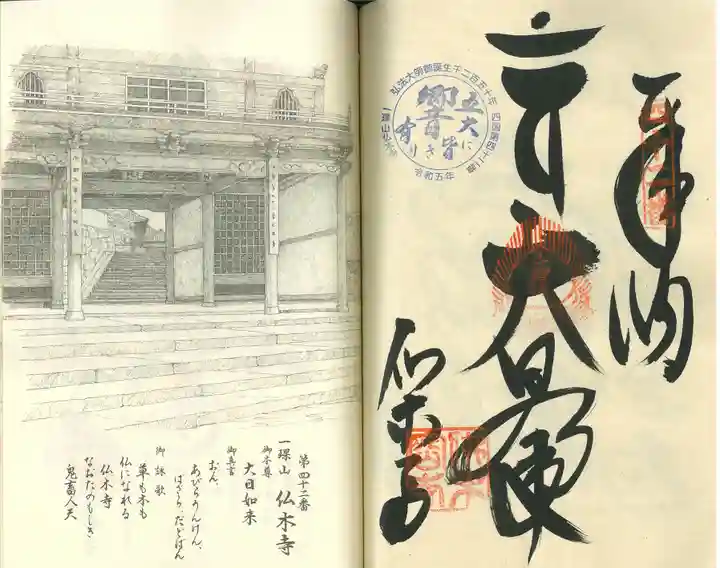 奉納
大日如来
仏木寺
弘法大師御誕生千二百五十年
四国第四十二番
令和五年
五大に
皆
響き
有り
第四十二番
仏木寺
御本尊
大日如来
御真言
おん、
あびらうんけん、
ばさら、だどばん
御詠歌
草も木も
仏になれる
仏木寺
なおたのもしき
鬼畜人天